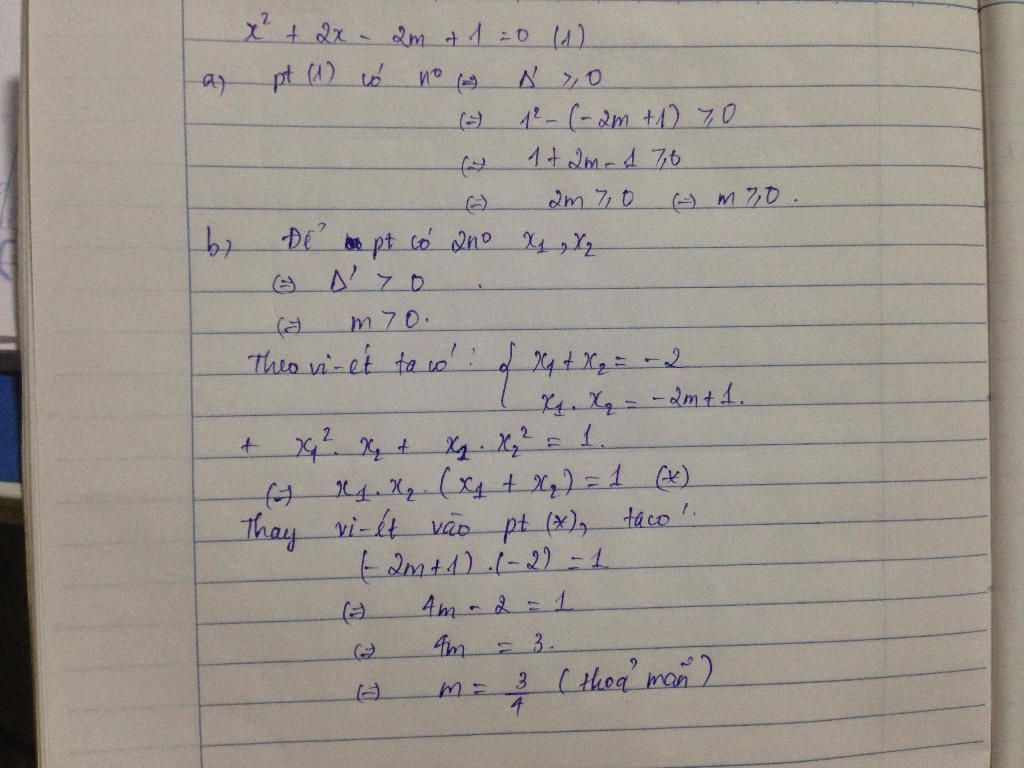 x² + 2x - 2m + 1 = 0 (1)
a) pt (1) có n⁰ (=) Δ' ⩾ 0
(=) 1² - (-2m + 1) ⩾ 0
(=) 1 + 2m - 1 ⩾ 0
(=) 2m ⩾ 0 (=) m ⩾ 0.
b) Để pt có 2n⁰ x₁, x₂
(=) Δ' > 0.
(=) m > 0.
Theo vi-ét ta có: { x₁ + x₂ = -2
x₁. x₂ = -2m + 1.
+ x₁². x₂ + x₁. x₂² = 1.
(=) x₁. x₂. (x₁ + x₂) = 1 (*)
Thay vi-ét vào pt (*), ta có:
(-2m + 1).(-2) = 1
(=) 4m - 2 = 1
(=) 4m = 3.
(=) m = 3/4 (thoả mãn)